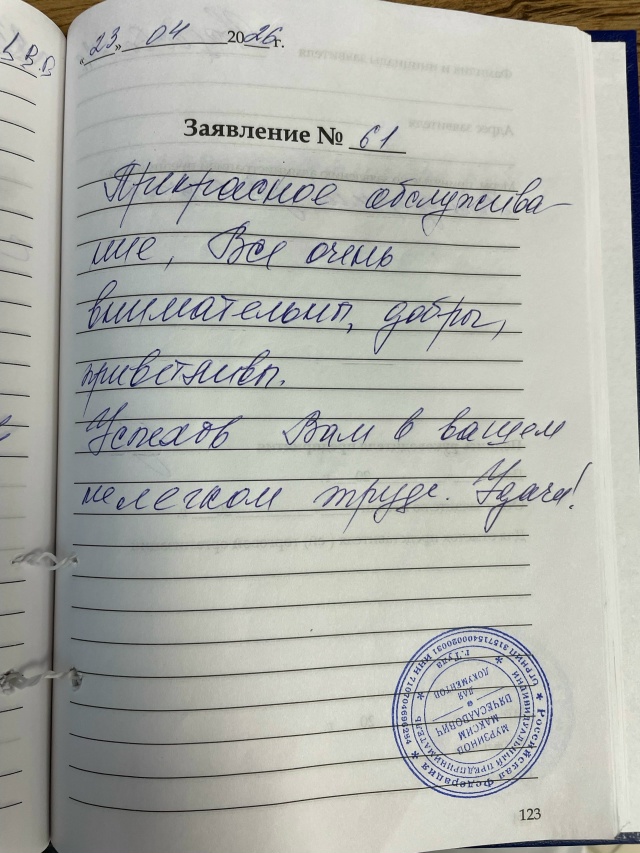 В.В
«23» 04 2026 г.
Заявление № 61
Прекрасное обслужива-
ние, Все очень
внимательны, добры,
приветливы.
Успехов Вам в вашем
нелегком труде. Удачи!
Российская Федерация
ИНДИВИДУАЛЬНЫЙ ПРЕДПРИНИМАТЕЛЬ
г. Тула
МУРЗИНОВ
МАКСИМ
ВЯЧЕСЛАВОВИЧ
ДЛЯ
ДОКУМЕНТОВ
123